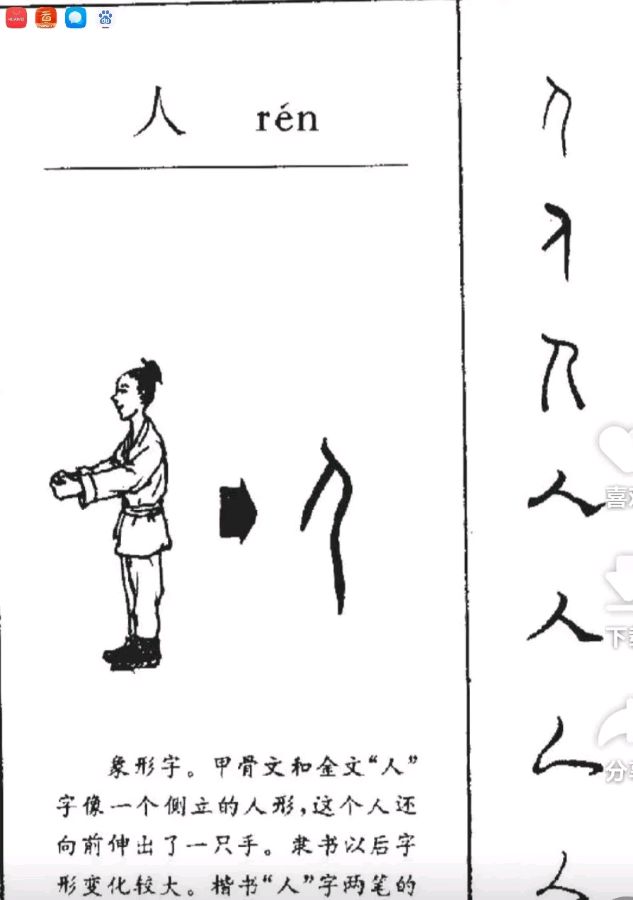 人 rén
象形字。甲骨文和金文“人”
字像一个侧立的人形，这个人还
向前伸出了一只手。隶书以后字
形变化较大。楷书“人”字两笔的
人
人
人
人
喜
下
分